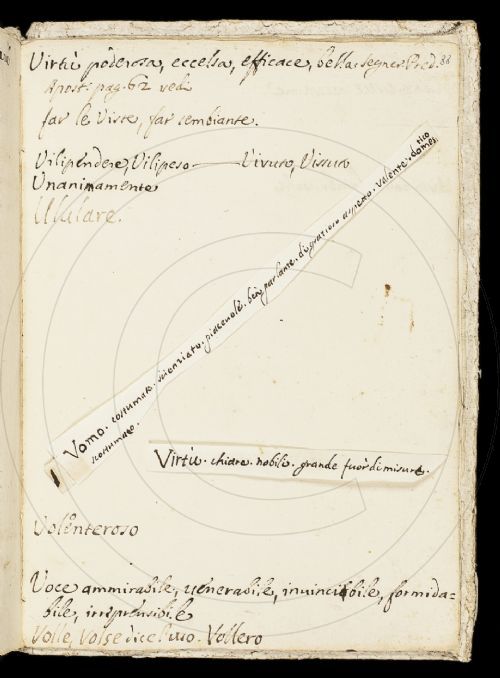 Virtù poderosa, eccelsa, efficace, bella. Segner Pred. 88
Apost: pag. 62 vedi
far le Viste, far sembiante.
Vilipendere, Vilipeso — Vivuto, Vissuto
Unanimamente
Ululare.
Vomo. costumato. scienziato. piacevole. ben parlante. di grazioso aspetto. valente. domes.
tico
scostumato
Virtù. chiara. nobile. grande fuor di misura.
Volenteroso
Voce ammirabile, venerabile, invincibile, formida-
bile, irreprensibile
Volle, Volse dice l'uso. Vollero